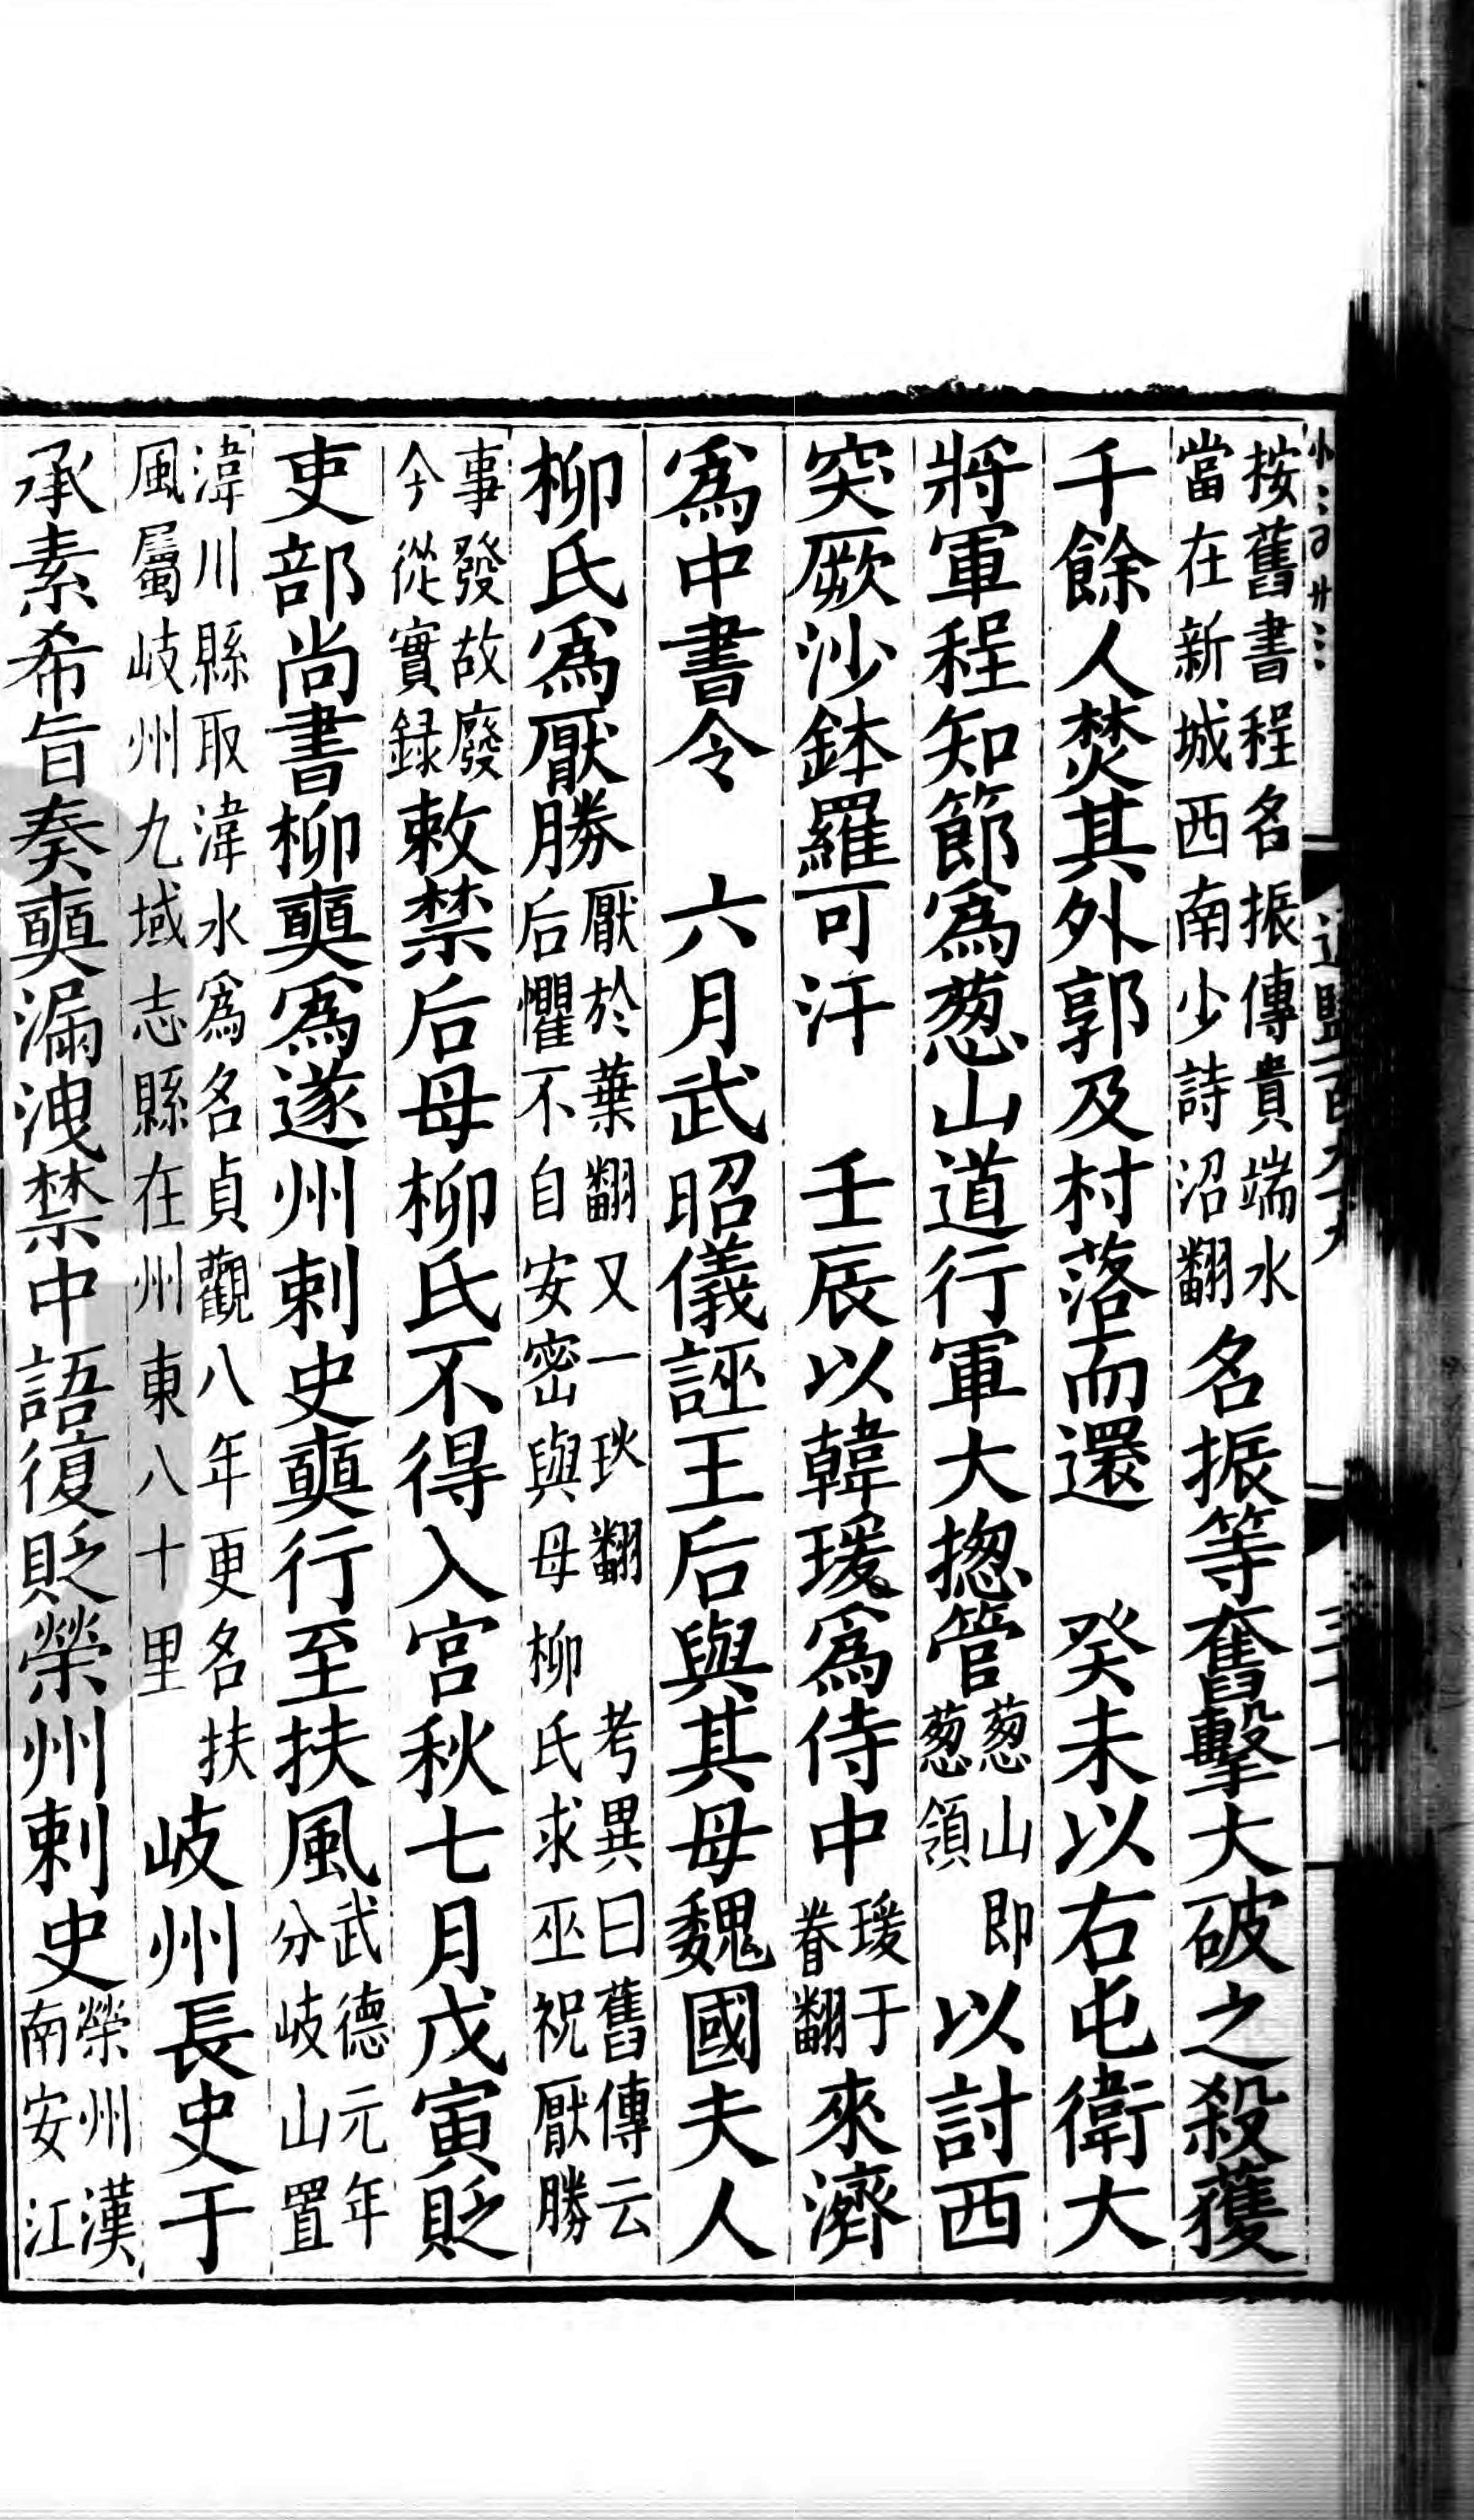 按舊書程名振傳貴端水當在新城西南少詩沼翻名振等奮擊大破之殺獲
千餘人焚其外郭及村落而還　癸未以右屯衛大
將軍程知節爲葱山道行軍大揔管葱山即葱領以討西
突厥沙鉢羅可汗　壬辰以韓瑗爲侍中瑗于眷翻來濟
爲中書令　六月武昭儀誣王后與其母魏國夫人
柳氏爲厭勝厭於葉翻又一琰翻考異曰舊傳云后懼不自安密與母柳氏求巫祝厭勝
事發故廢今從實録敕禁后母柳氏不得入宮秋七月戊寅貶
吏部尚書柳奭爲遂州刺史奭行至扶風武德元年分岐山置
湋川縣取湋水爲名貞觀八年更名扶風屬岐州九域志縣在州東八十里岐州長史于
承素希旨奏奭漏洩禁中語復貶榮州刺史榮州漢南安江